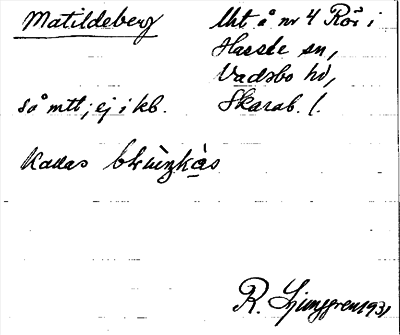 Matildeberg
Uht å nr 4 Rör i
Hassle sn,
Vadsbo hd,
Skarab. l.
så mtl; ej i kb.
Kallas
R. Ljunggren 1931